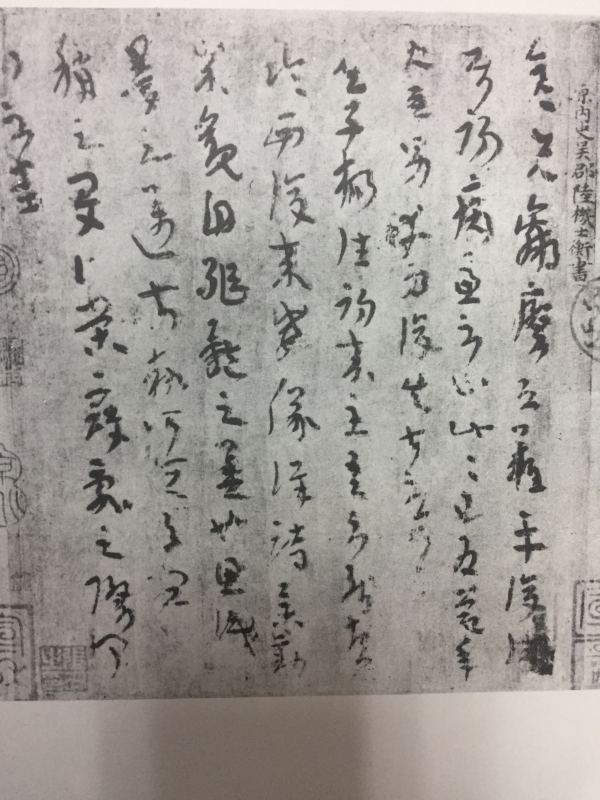 原內史吳郡陸機士衡書
彥先羸瘵恐難平復往屬
初病慮不止此此已為慶承
使唯男幸為復失前憂耳
吳子楊往初來主吾不能盡
臨西復來威儀詳跱舉動
成觀自軀體之美也思識
量之邁前勢所恒有宜
稱之夏伯榮寇亂之際聞
問不悉